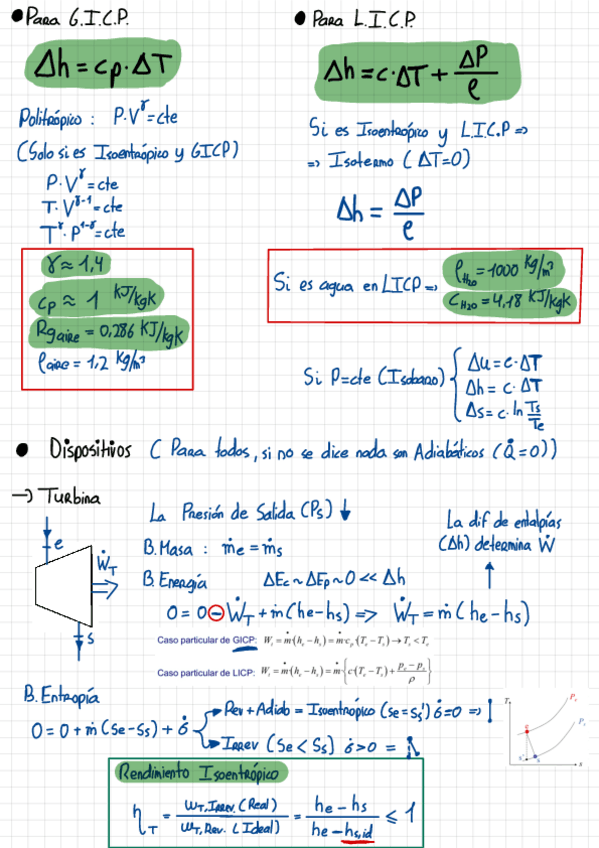 ● Para G.I.C.P.
Δh = cp·ΔT
Politrópico: P·V^γ = cte
(Solo si es Isoentrópico y GICP)
P·V^γ = cte
T·V^γ-1 = cte
T^γ·P^1-γ = cte
γ ≈ 1,4
cp ≈ 1 KJ/kgK
Rgaire = 0,286 KJ/kgK
ρaire = 1,2 kg/m³
● Para L.I.C.P.
Δh = c·ΔT + ΔP/ρ
Si es Isoentrópico y L.I.C.P ⇒
⇒ Isotermo (ΔT=0)
Δh = ΔP/ρ
Si es agua en LICP ⇒
ρH2O = 1000 kg/m³
CH2O = 4,18 KJ/kgK
Si P=cte (Isobaro)
Δu = c·ΔT
Δh = c·ΔT
Δs = c·ln Ts/Te
● Dispositivos ( Para todos, si no se dice nada son Adiabáticos (Q̇=0))
→ Turbina
e
ẆT
s
La Presión de Salida (Ps) ↓
B. Masa: ṁe = ṁs
B. Energía ΔEc ~ ΔEp ~ 0 << Δh
La dif de entalpías
(Δh) determina Ẇ
0 = 0 − ẆT + ṁ(he-hs) ⇒ ẆT = ṁ(he-hs)
Caso particular de GICP: Wt = ṁ(he − hs) = ṁcp(Te − Ts) → Ts < Te
Caso particular de LICP: Wt = ṁ(he − hs) = ṁ{c(Te − Ts) + pe − ps/ρ}
B. Entropía
0 = 0 + ṁ(Se-Ss) + σ̇
Rev + Adiab = Isoentrópico (Se=Ss) σ̇=0 ⇒
Irrev (Se < Ss) σ̇>0 =
Rendimiento Isoentrópico
ηT = WT,Irrev.(Real)/WT,Rev.(Ideal) = he − hs/he − hs,id ≤ 1